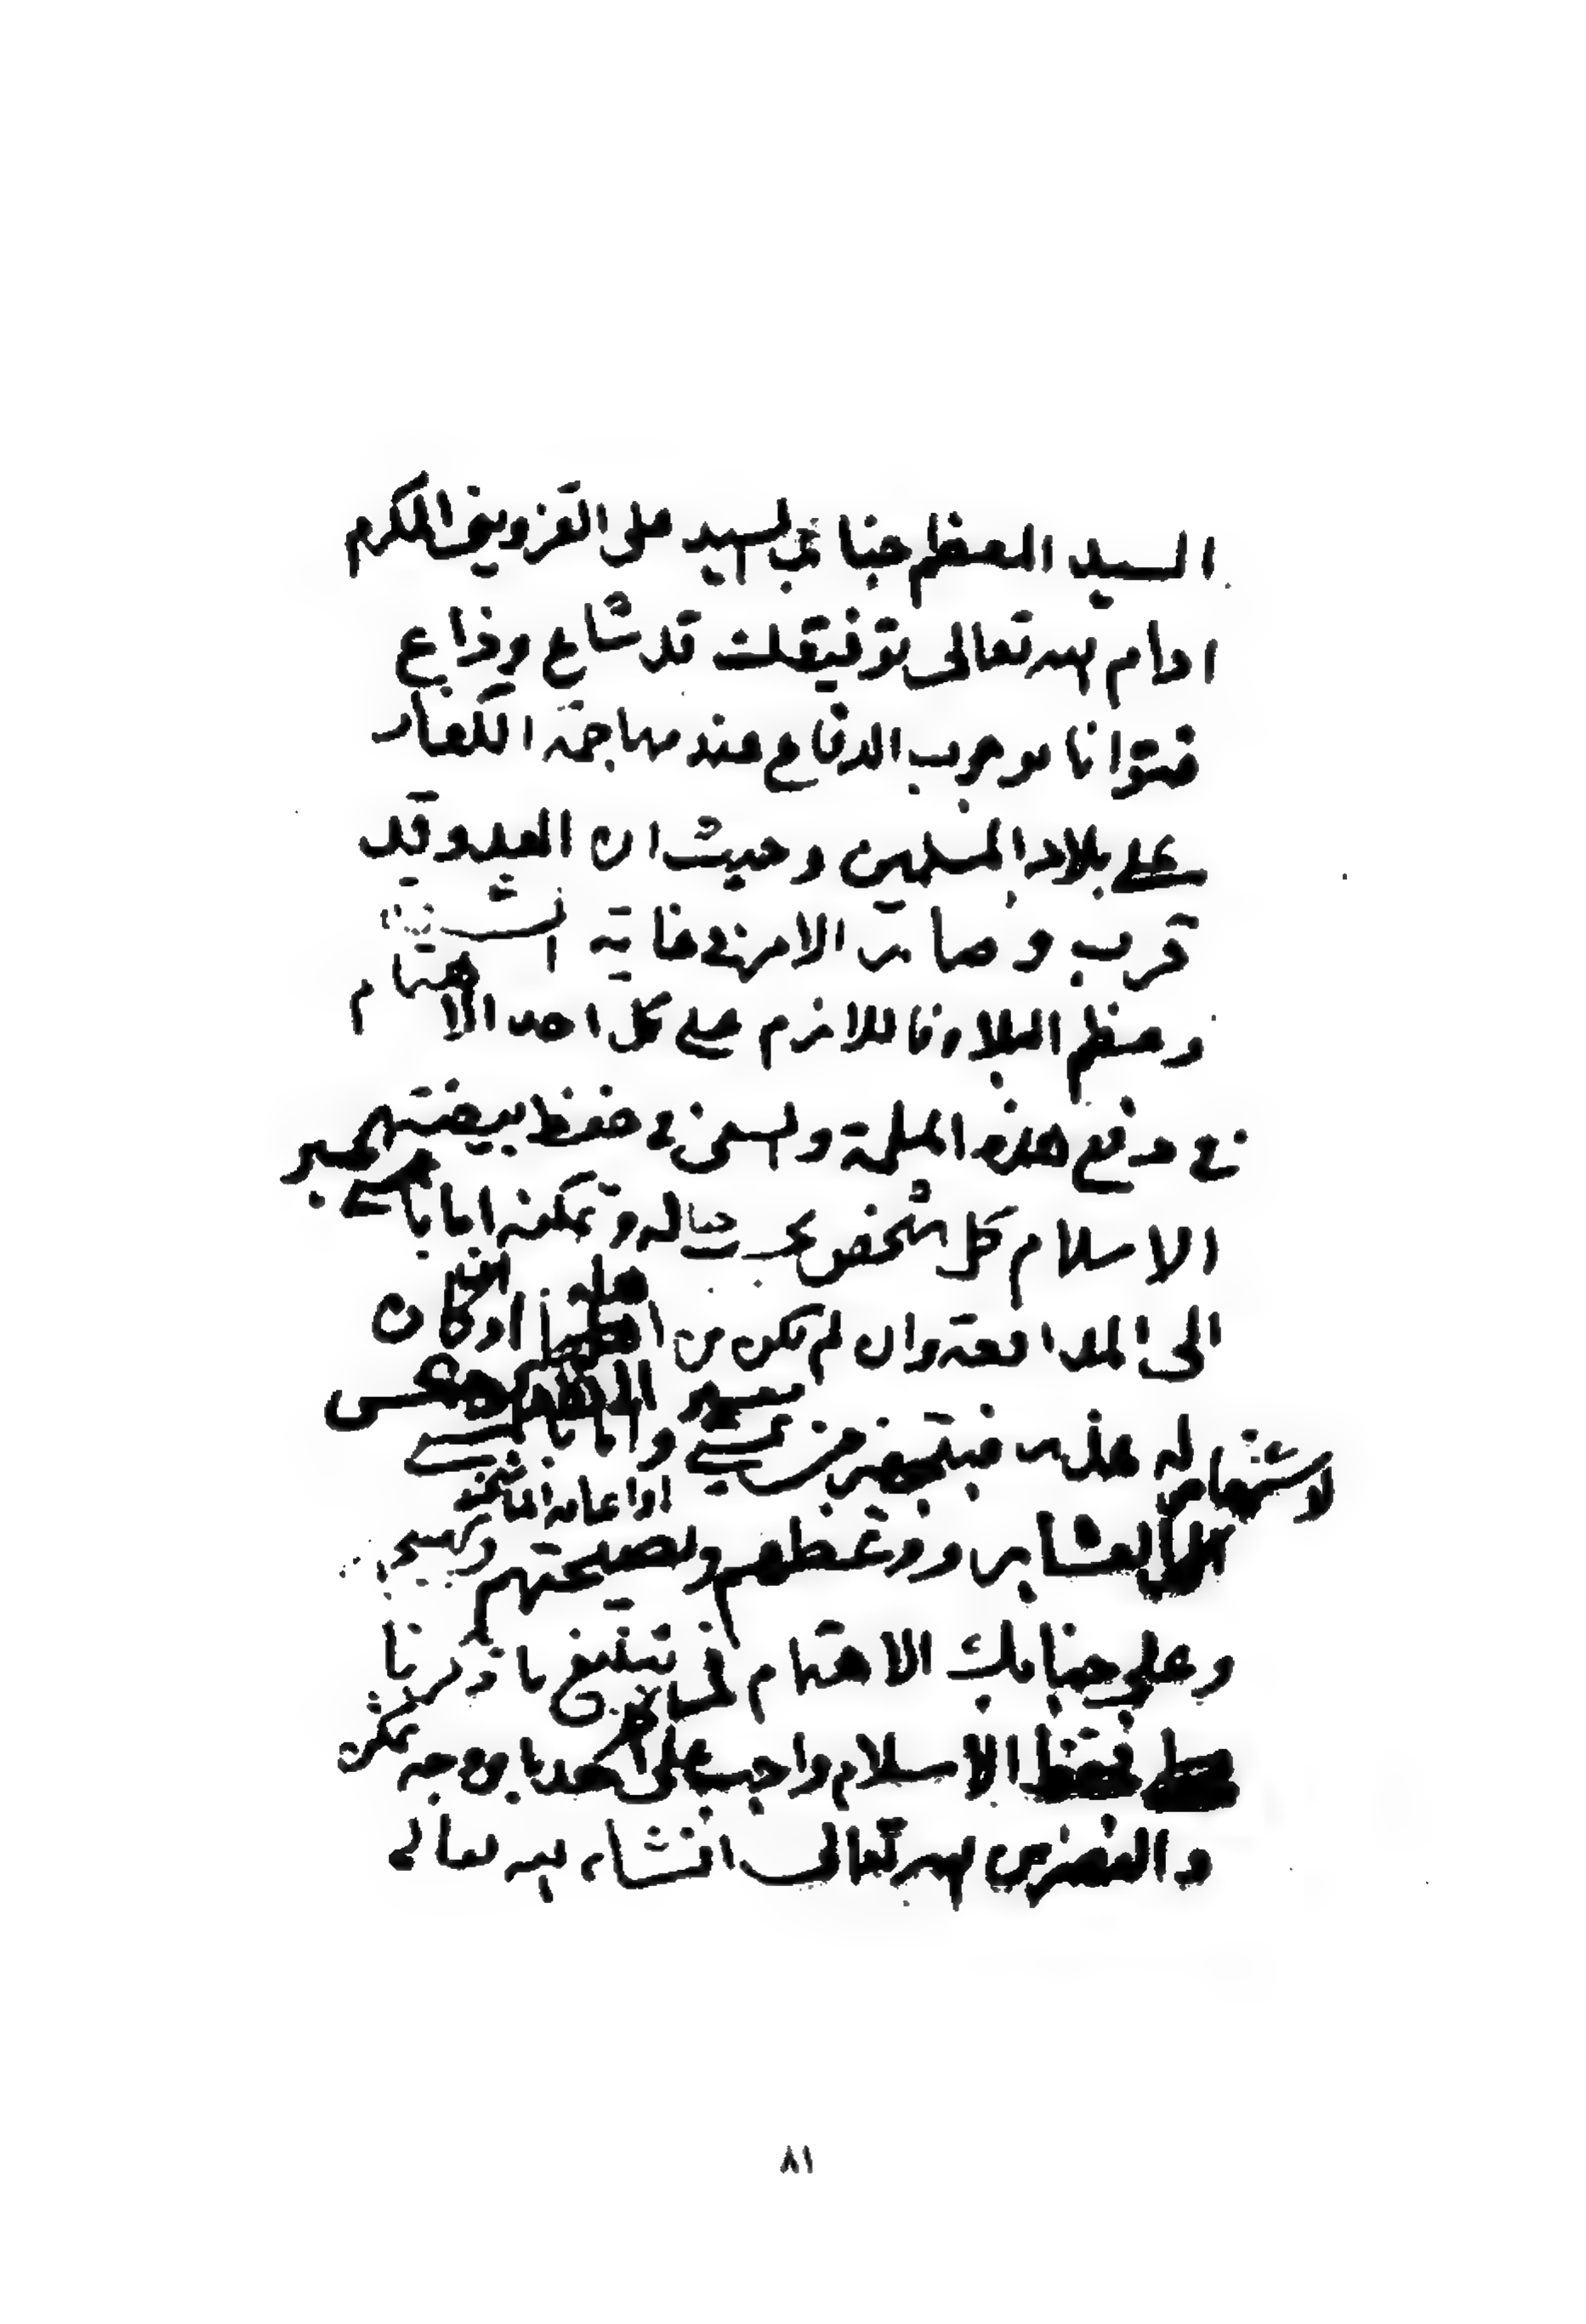 السيد المعظم جناب السيد على القزويني المكرم
ادام الله تعالى توفيقك قد شاع وذاع
فتوانا بوجوب الدفاع عند مهاجمة الكفار
على بلاد المسلمين وحيث ان العدو قد
قرب وصار الامر في غاية الشدة
وعظم البلاء فاللازم على كل احد الاهتمام
في دفع هذه الملمة والسعي في حفظ بيضة
الاسلام كل شخص بحسب حاله وتمكنه اما
الى المدافعة وان لم يكن من اهلها او كان
له عذر فبتجهيز غيره واما
العشاير ووعظهم ونصيحتهم
وعلى جنابك الاهتمام في تبليغ ما ذكرنا
فحفظ الاسلام واجب على كل احد باي وجه تمكن
والنصر من الله تعالى انشاء الله تعالى
٨١